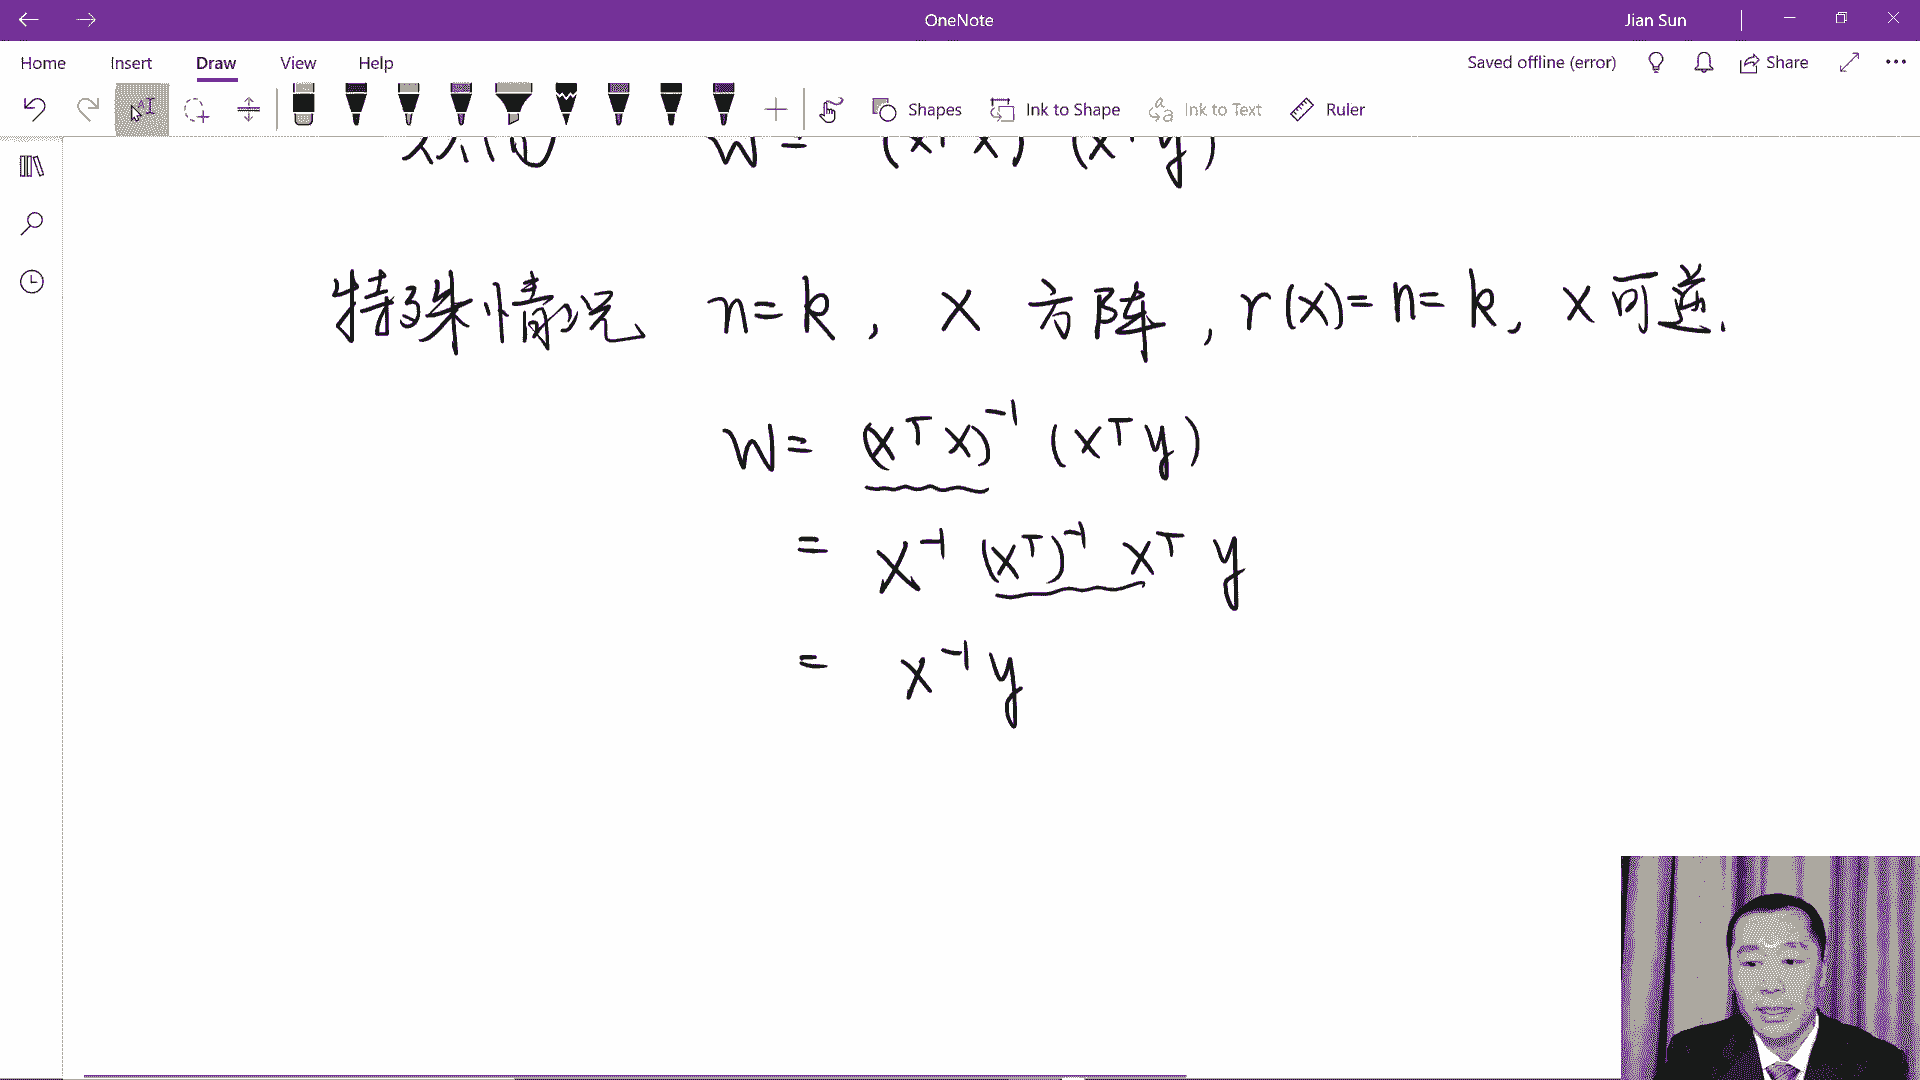 OneNote
Jian Sun
Home Insert Draw View Help
Saved offline (error) Share
Shapes Ink to Shape Ink to Text Ruler
W = (X^T X) (X^T y)
特殊情况 n=k, X 方阵, r(X)=n=k, X可逆.
W = (X^T X)^-1 (X^T y)
= X^-1 (X^T)^-1 X^T y
= X^-1 y